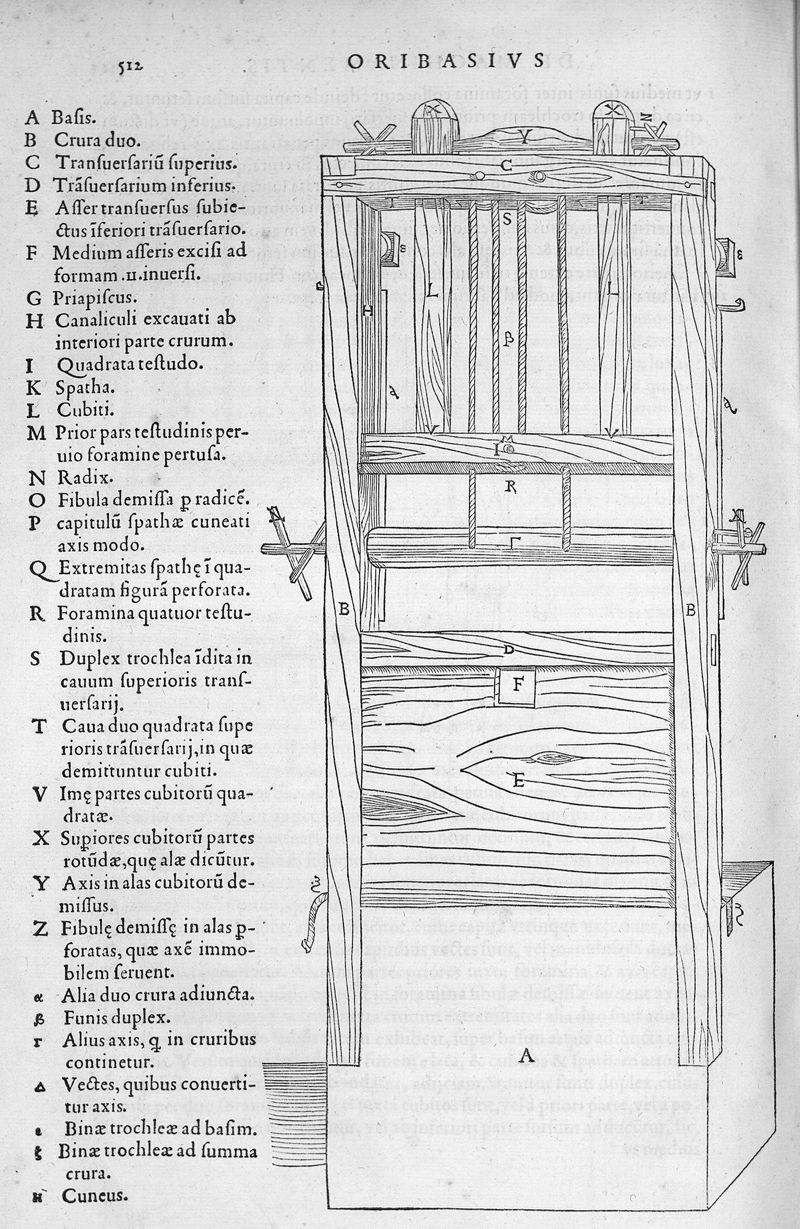 512 ORIBASIVS
A Baſis.
B Crura duo.
C Tranſuerſariũ ſuperius.
D Trãſuerſarium inferius.
E Aſſer tranſuerſus ſubie-
ctus ĩferiori trãſuerſario.
F Medium aſſeris exciſi ad
formam .π.inuerſi.
G Priapiſcus.
H Canaliculi excauati ab
interiori parte crurum.
I Quadrata teſtudo.
K Spatha.
L Cubiti.
M Prior pars teſtudinis per-
uio foramine pertuſa.
N Radix.
O Fibula demiſſa ꝑ radicẽ.
P capitulũ ſpathæ cuneati
axis modo.
Q Extremitas ſpathę ĩ qua-
dratam figurã perforata.
R Foramina quatuor teſtu-
dinis.
S Duplex trochlea ĩdita in
cauum ſuperioris tranſ-
uerſarij.
T Caua duo quadrata ſupe
rioris trãſuerſarij,in quæ
demittuntur cubiti.
V Imę partes cubitorũ qua-
dratæ.
X Supiores cubitorũ partes
rotũdæ,quę alæ dicũtur.
Y Axis in alas cubitorũ de-
miſſus.
Z Fibulę demiſſę in alas ꝑ-
foratas, quæ axẽ immo-
bilem ſeruent.
α Alia duo crura adiuncta.
β Funis duplex.
Γ Alius axis, q in cruribus
continetur.
Δ Vectes, quibus conuerti-
tur axis.
ε Binæ trochleæ ad baſim.
ξ Binæ trochleæ ad ſumma
crura.
ϰ Cuneus.
X X
Y
C
T S T
H L L
β
V V
M
I
R
Γ
B B
D
F
E
A